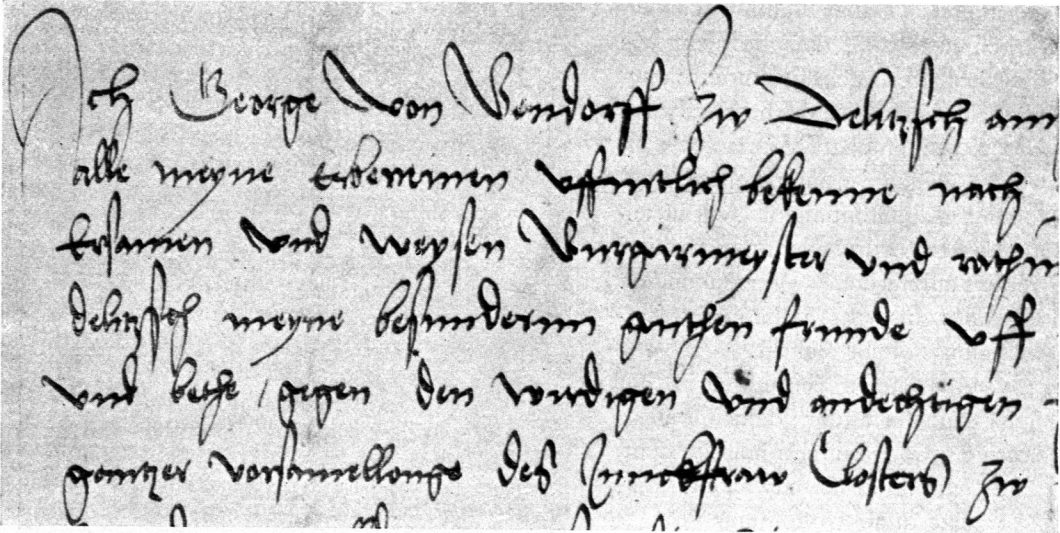 Ich George von Wendorff zw Delitzsch am
alle meyne Erbenemen uffintlich bekenne nach
Ersamen und weysen Burgirmeyster und
delitzsch meyne besundernn guthen frunde uff
und bethe / gegen den wirdigen und andechtigen
gantzer vorsamellonge des Junckfraw Closters zw